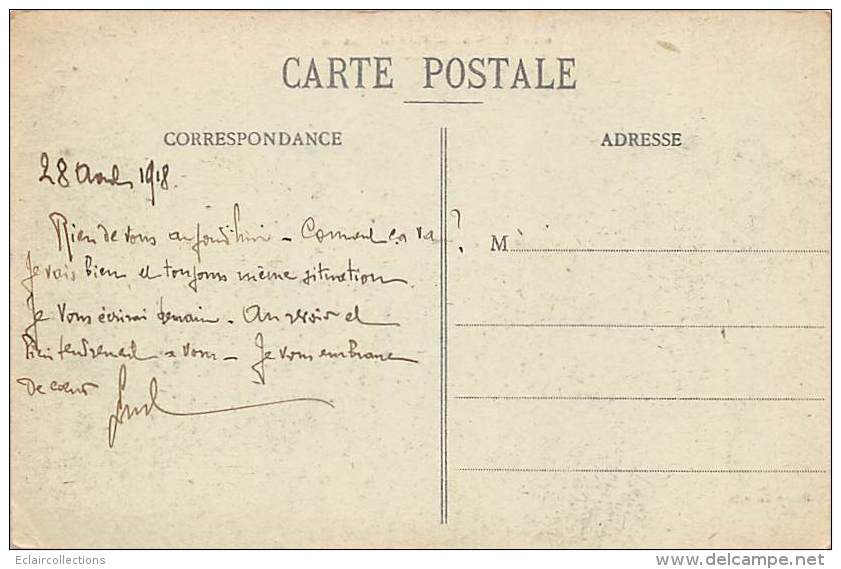 CARTE POSTALE
CORRESPONDANCE
ADRESSE
28 1918.
Rien de vous aujourd'hui - Comment ça va ?
M
Je vais bien et toujours même situation.
Je vous écrirai demain - Au revoir et
bien tendrement à vous - Je vous embrasse
de cœur
Eclaircollections
www.delcampe.net